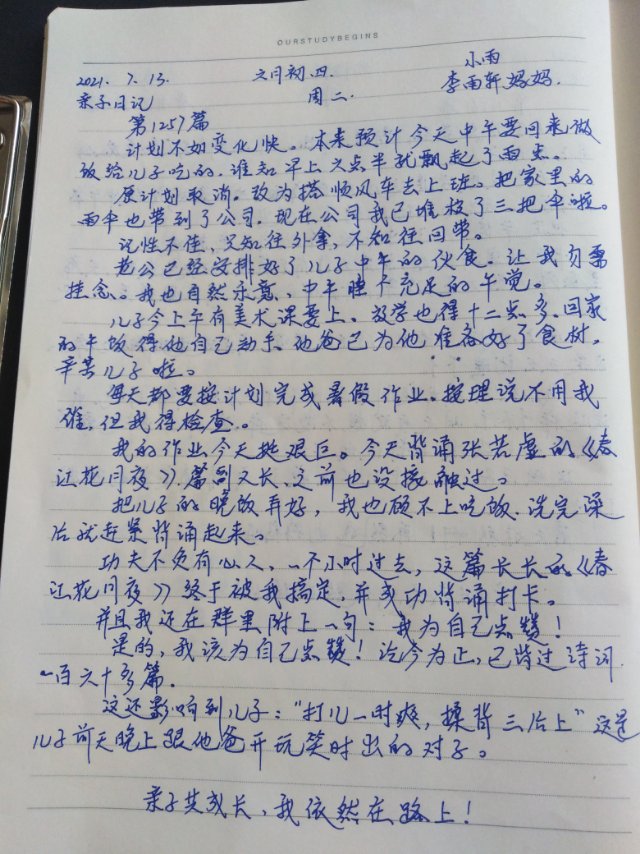 OURSTUDYBEGINS
小雨
2021. 7. 13. 六月初四. 李雨轩妈妈.
亲子日记 周二.
第1257篇
计划不如变化快。本来预计今天中午要回来做
饭给儿子吃的. 谁知早上六点半就飘起了雨点。
原计划取消. 改为搭顺风车去上班。把家里的
雨伞也带到了公司. 现在公司我已堆放了三把伞啦。
记性不佳, 只知往外拿, 不知往回带。
老公已经安排好了儿子中午的伙食. 让我勿需
挂念。我也自然乐意, 中午睡个充足的午觉。
儿子今上午有美术课要上. 放学也得十二点多. 回家
的午饭得他自己动手. 他爸已为他准备好了食材.
辛苦儿子啦。
每天都要按计划完成暑假作业. 按理说不用我
催. 但我得检查。
我的作业今天挺艰巨。今天背诵张若虚的《春
江花月夜》. 篇幅又长. 之前也没接触过。
把儿子的晚饭弄好, 我也顾不上吃饭. 洗完澡
后就赶紧背诵起来。
功夫不负有心人, 一个小时过去, 这篇长长的《春
江花月夜》终于被我搞定. 并成功背诵打卡。
并且我还在群里附上一句: 我为自己点赞!
是的, 我该为自己点赞! 迄今为止, 已背过诗词
一百六十多篇.
这还影响到儿子: “打儿一时爽, 揉背三后上” 这是
儿子前天晚上跟他爸开玩笑时出的对子。
亲子共成长, 我依然在路上!